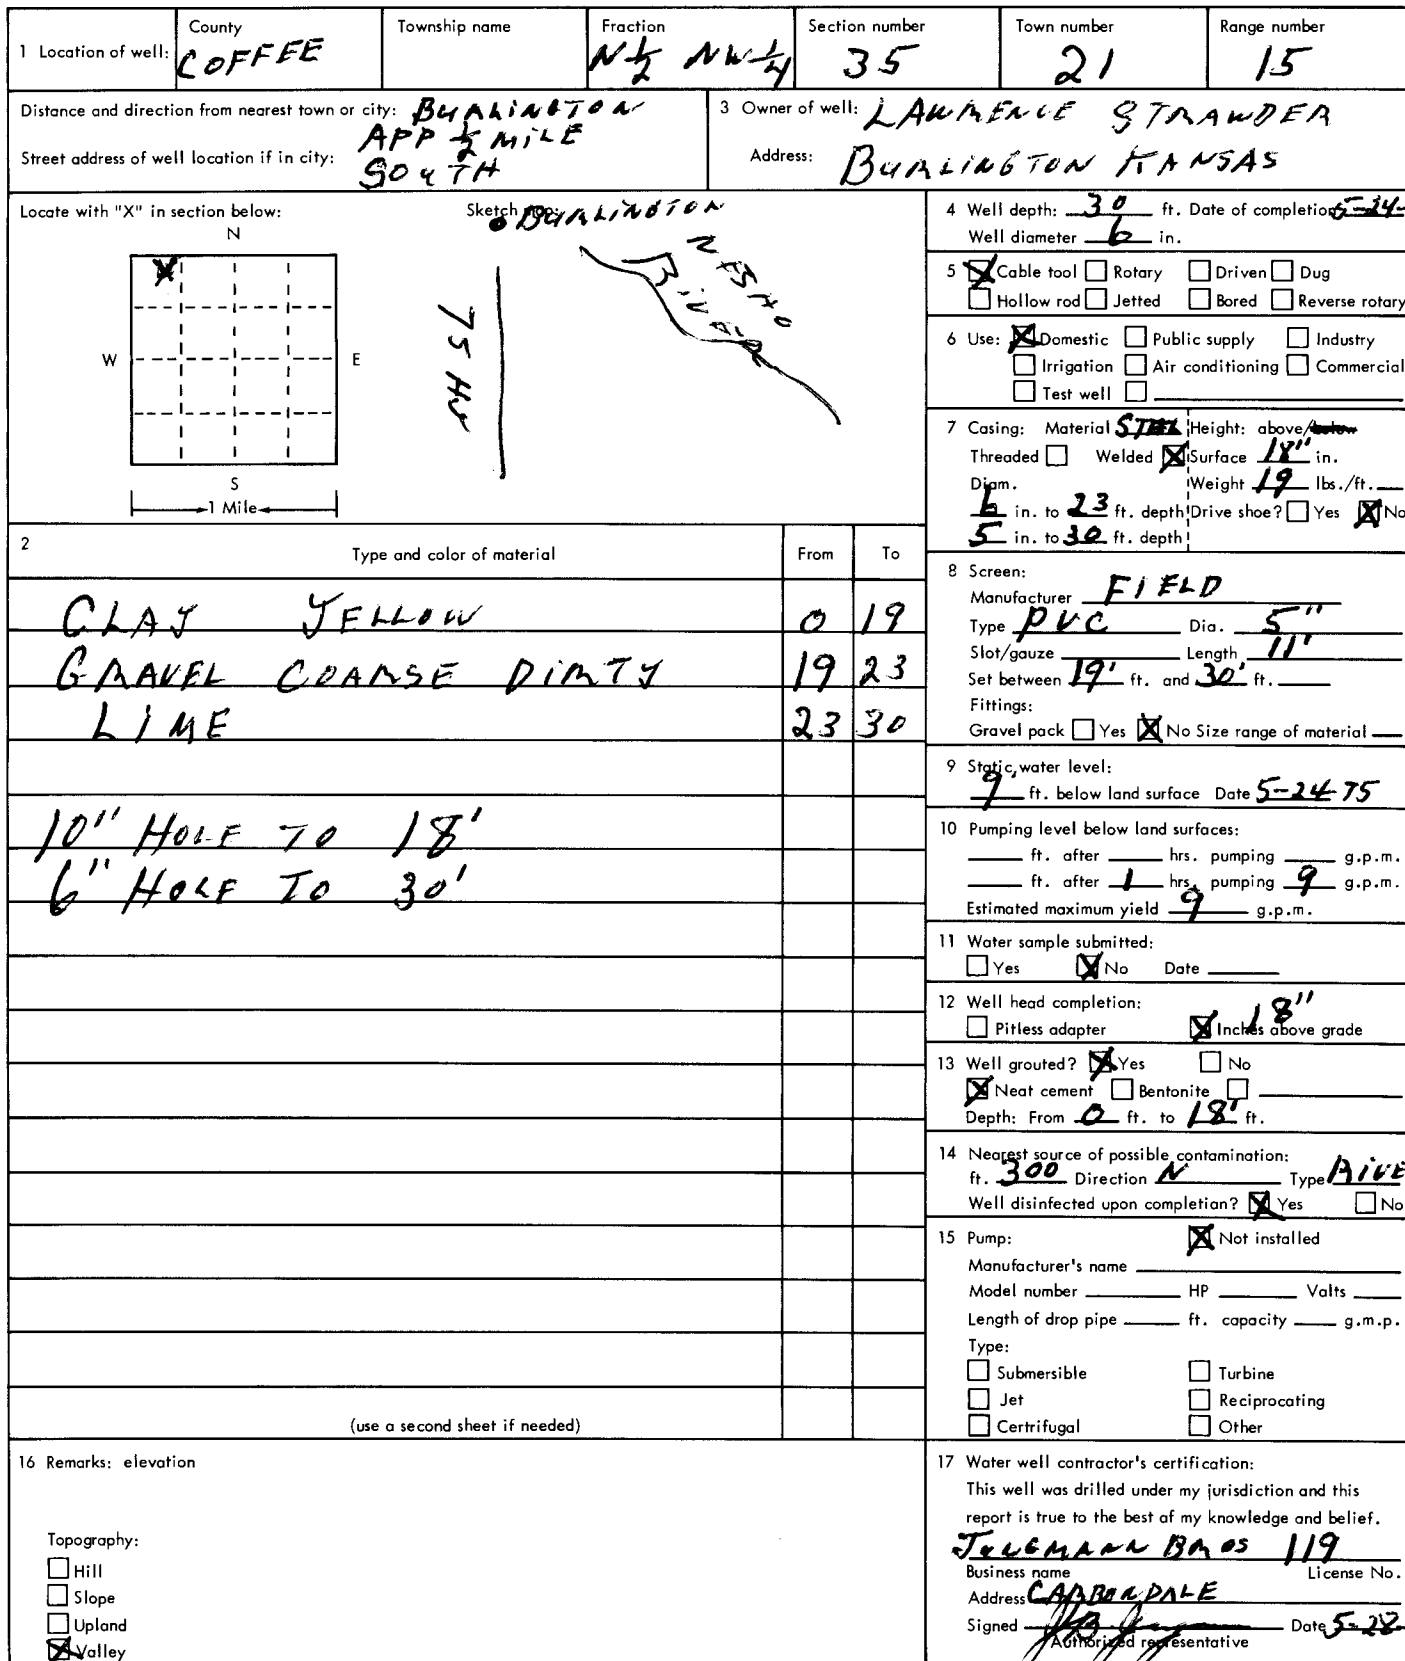 1 Location of well: County COFFEE Township name Fraction N 1/2 NW 1/4 Section number 35 Town number 21 Range number 15
Distance and direction from nearest town or city: BURLINGTON
APP 1/2 MILE
Street address of well location if in city: SOUTH
3 Owner of well: LAWRENCE STRAWDER
Address: BURLINGTON KANSAS
Locate with "X" in section below:
N
W E
S
1 Mile
Sketch map:
BURLINGTON
NESHO
RIVER
75 HW
2 Type and color of material From To
CLAY YELLOW 0 19
GRAVEL COARSE DIRTY 19 23
LIME 23 30
10" HOLE TO 18'
6" HOLE TO 30'
(use a second sheet if needed)
4 Well depth: 30 ft. Date of completion 5-24-
Well diameter 6 in.
5 Cable tool Rotary Driven Dug
Hollow rod Jetted Bored Reverse rotary
6 Use: Domestic Public supply Industry
Irrigation Air conditioning Commercial
Test well
7 Casing: Material STEEL Height: above/below
Threaded Welded Surface 18" in.
Diam. Weight 19 lbs./ft.
6 in. to 23 ft. depth Drive shoe? Yes No
5 in. to 30 ft. depth
8 Screen:
Manufacturer FIELD
Type PVC Dia. 5"
Slot/gauze Length 11'
Set between 19' ft. and 30' ft.
Fittings:
Gravel pack Yes No Size range of material
9 Static water level:
9' ft. below land surface Date 5-24-75
10 Pumping level below land surfaces:
ft. after hrs. pumping g.p.m.
ft. after 1 hrs. pumping 9 g.p.m.
Estimated maximum yield 9 g.p.m.
11 Water sample submitted:
Yes No Date
12 Well head completion:
18"
Pitless adapter Inches above grade
13 Well grouted? Yes No
Neat cement Bentonite
Depth: From 0 ft. to 18' ft.
14 Nearest source of possible contamination:
ft. 300 Direction N Type RIVE
Well disinfected upon completian? Yes No
15 Pump: Not installed
Manufacturer's name
Model number HP Valts
Length of drop pipe ft. capacity g.m.p.
Type:
Submersible Turbine
Jet Reciprocating
Certrifugal Other
16 Remarks: elevation
Topography:
Hill
Slope
Upland
Valley
17 Water well contractor's certification:
This well was drilled under my jurisdiction and this
report is true to the best af my knowledge and belief.
BROS 119
Business name License No.
Address CARBONDALE
Signed Date 5-28-
Authorized representative